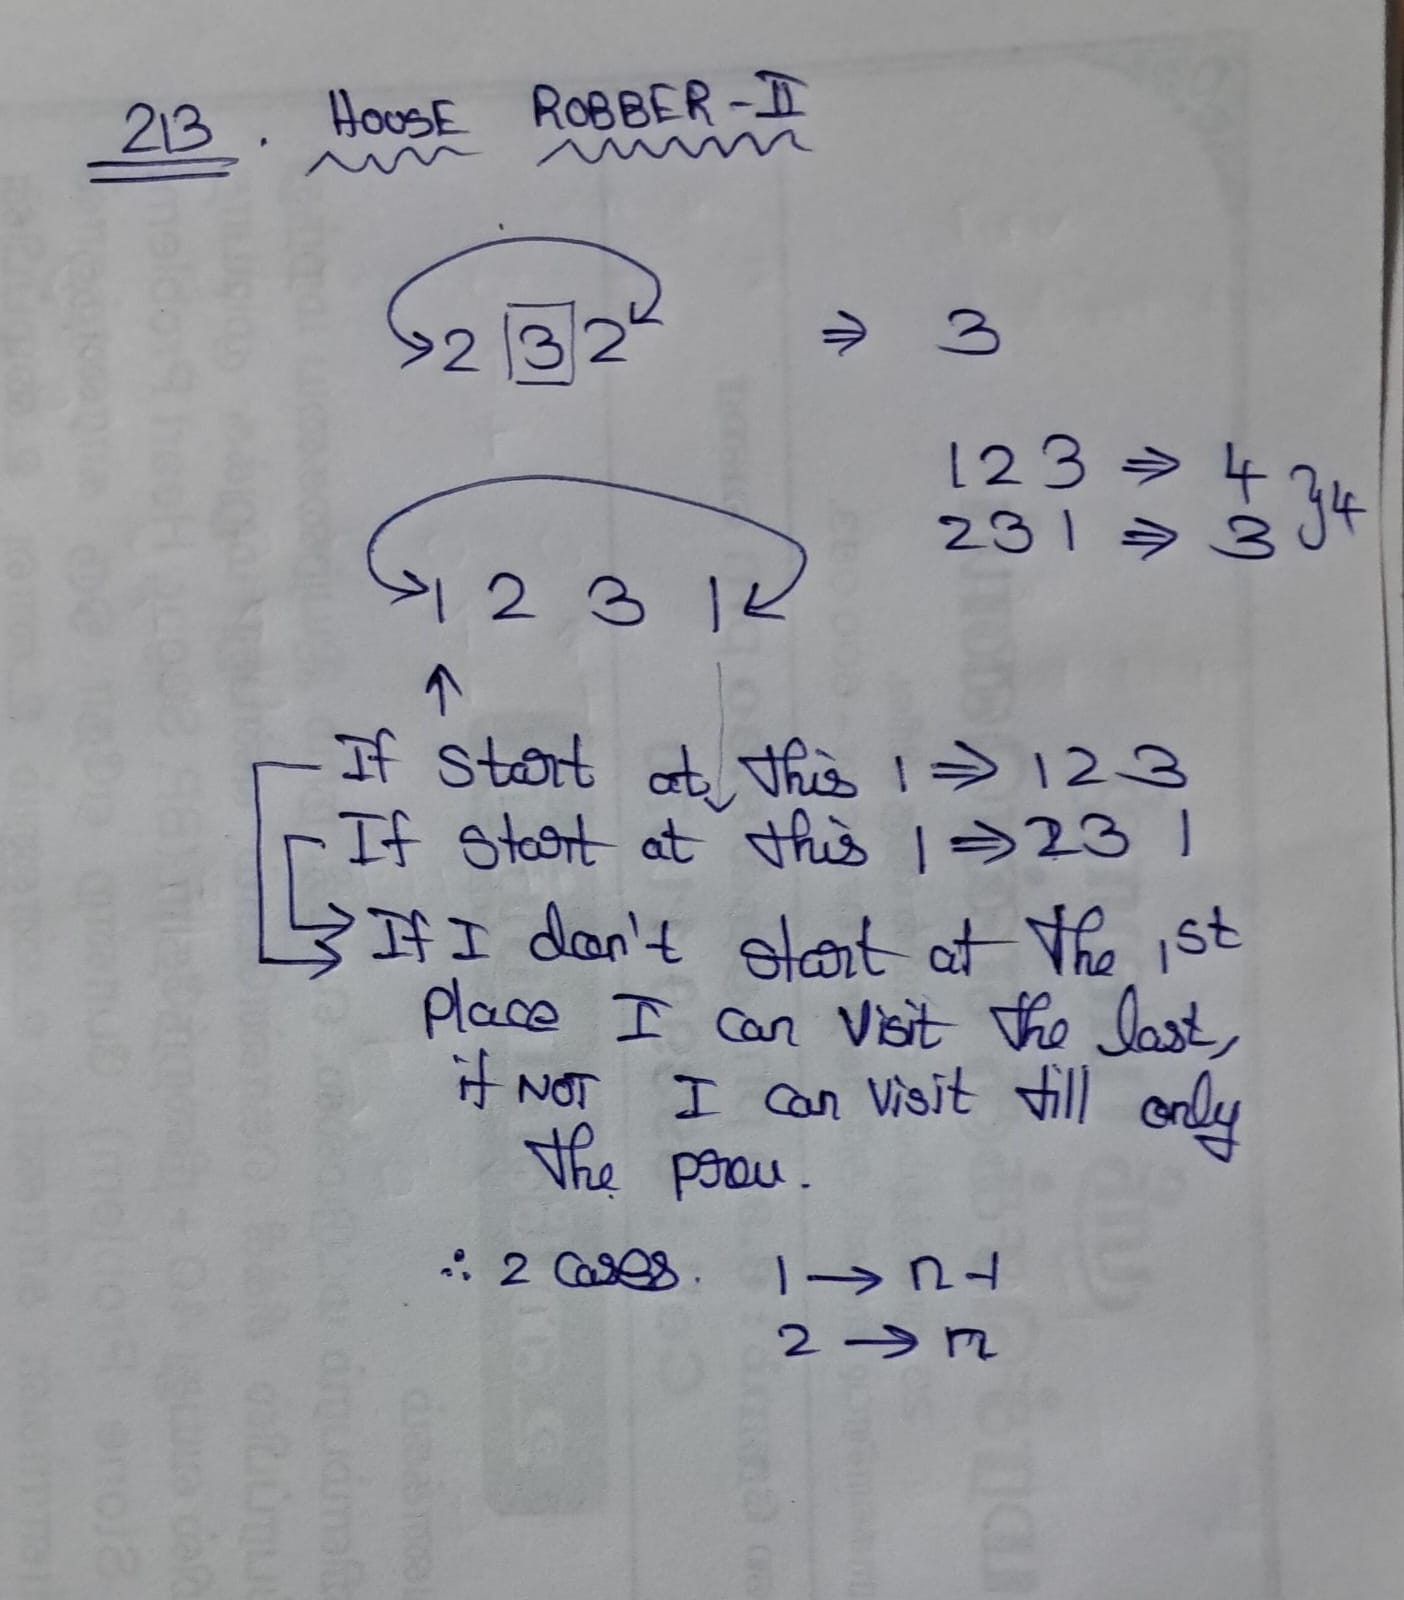 213. HOUSE ROBBER-II
2 3 2 ⇒ 3
1 2 3 ⇒ 4 } 4
2 3 1 ⇒ 3
1 2 3 1
If start at this 1 ⇒ 1 2 3
If start at this 1 ⇒ 2 3 1
If I don't start at the 1st
place I can visit the last,
if NOT I can visit till only
the prev.
∴ 2 cases. 1 → n-1
2 → n